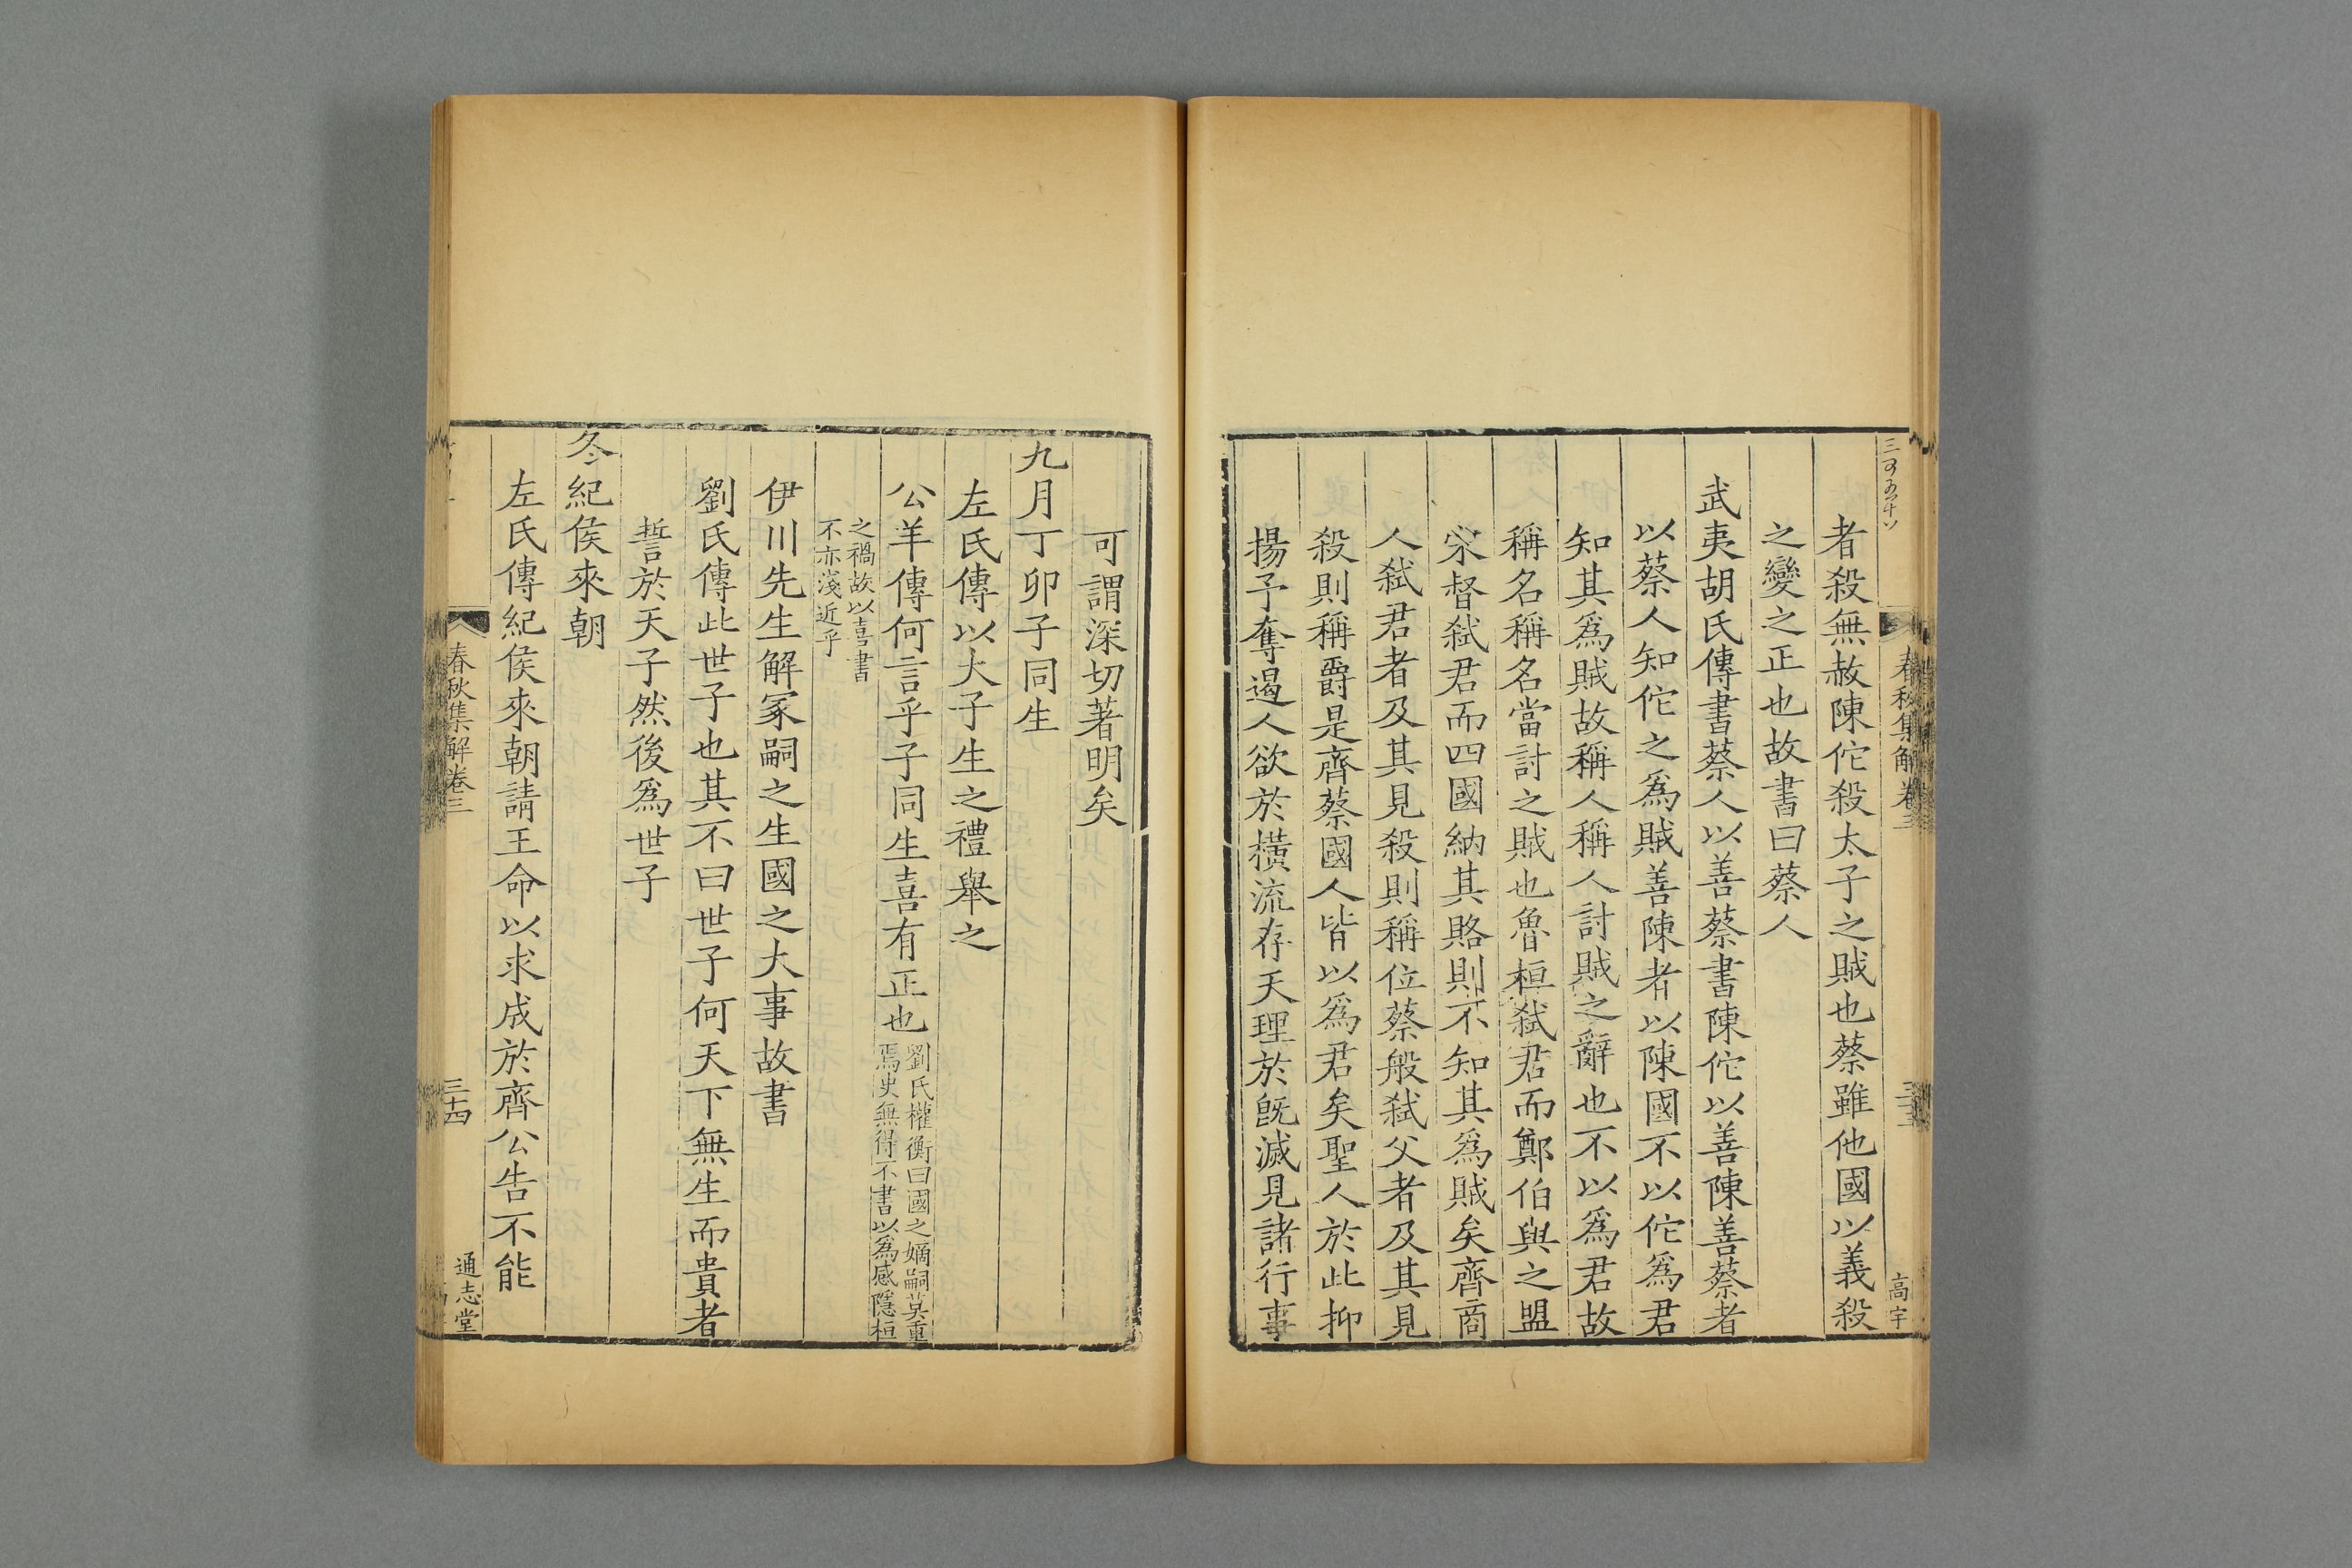 春秋集解卷三
高宇
者殺無赦陳佗殺太子之賊也蔡雖他國以義殺
之變之正也故書曰蔡人
武夷胡氏傳書蔡人以善蔡書陳佗以善陳善蔡者
以蔡人知佗之爲賊善陳者以陳國不以佗爲君
知其爲賊故稱人稱人討賊之辭也不以爲君故
稱名稱名當討之賊也魯桓弑君而鄭伯與之盟
宋督弑君而四國納其賂則不知其爲賊矣齊商
人弑君者及其見殺則稱位蔡般弑父者及其見
殺則稱爵是齊蔡國人皆以爲君矣聖人於此抑
揚予奪遏人欲於橫流存天理於旣滅見諸行事
可謂深切著明矣
九月丁卯子同生
左氏傳以大子生之禮舉之
公羊傳何言乎子同生喜有正也
劉氏權衡曰國之嫡嗣莫重
焉史無得不書以爲感隱桓
之禍故以喜書
不亦淺近乎
伊川先生解冢嗣之生國之大事故書
劉氏傳此世子也其不曰世子何天下無生而貴者
誓於天子然後爲世子
冬紀侯來朝
左氏傳紀侯來朝請王命以求成於齊公告不能
春秋集解卷三
三十四
通志堂